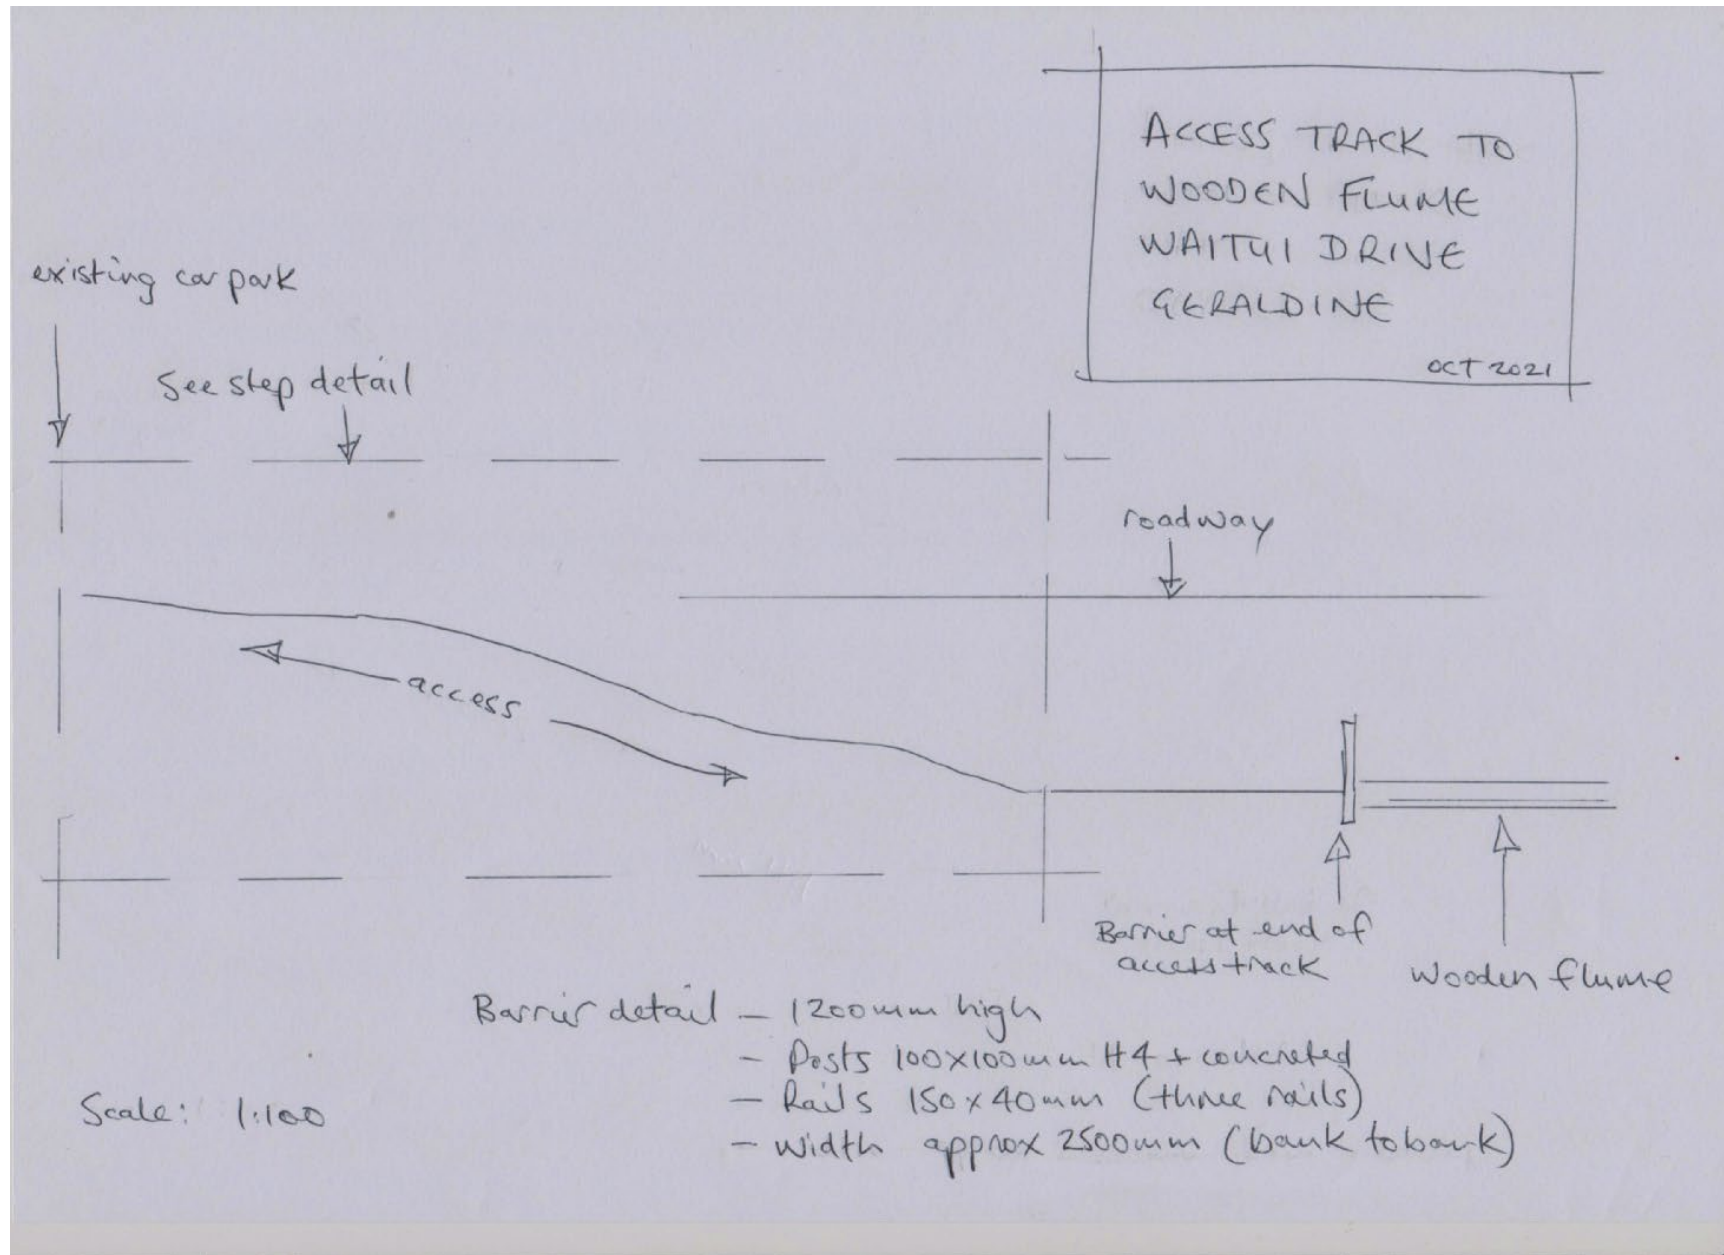 ACCESS TRACK TO
WOODEN FLUME
WAITUI DRIVE
GERALDINE
OCT 2021
existing car park
See step detail
roadway
access
Barrier at end of
access track
Wooden flume
Barrier detail – 1200mm high
– Posts 100x100mm H4 + concreted
– Rails 150x40mm (three rails)
– Width approx 2500mm (bank to bank)
Scale: 1:100